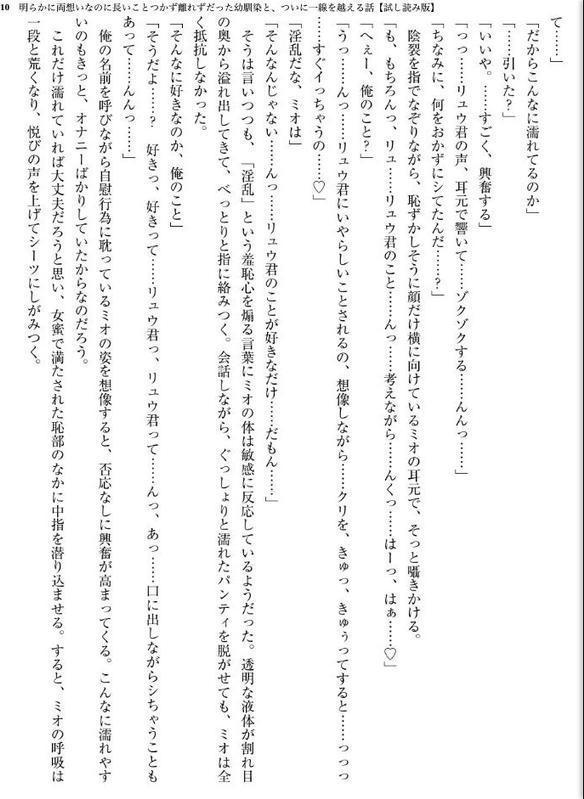 10 明らかに両想いなのに長いことつかず離れずだった幼馴染と、ついに一線を越える話【試し読み版】
て……」
「だからこんなに濡れてるのか」
「……引いた？」
「いいや。……すごく、興奮する」
「っっ……リュウ君の声、耳元で響いて……ゾクゾクする……んんっ……」
「ちなみに、何をおかずにシてたんだ……？」
陰裂を指でなぞりながら、恥ずかしそうに顔だけ横に向けているミオの耳元で、そっと囁きかける。
「も、もちろんっ、リュ……リュウ君のこと……んっ……考えながら……んくっ……はーっ、はぁ……♡」
「へぇー、俺のこと？」
「うっ……んっ……リュウ君にいやらしいことされるの、想像しながら……クリを、きゅっ、きゅぅってすると……っっっ
……すぐイっちゃうの……♡」
「淫乱だな、ミオは」
「そんなんじゃない……んっ……リュウ君のことが好きなだけ……だもん……」
そうは言いつつも、「淫乱」という羞恥心を煽る言葉にミオの体は敏感に反応しているようだった。透明な液体が割れ目
の奥から溢れ出してきて、べっとりと指に絡みつく。会話しながら、ぐっしょりと濡れたパンティを脱がせても、ミオは全
く抵抗しなかった。
「そんなに好きなのか、俺のこと」
「そうだよ……？　好きっ、好きって……リュウ君っ、リュウ君って……んっ、あっ……口に出しながらシちゃうことも
あって……んんっ……」
俺の名前を呼びながら自慰行為に耽っているミオの姿を想像すると、否応なしに興奮が高まってくる。こんなに濡れやす
いのもきっと、オナニーばかりしていたからなのだろう。
これだけ濡れていれば大丈夫だろうと思い、女蜜で満たされた恥部のなかに中指を潜り込ませる。すると、ミオの呼吸は
一段と荒くなり、悦びの声を上げてシーツにしがみつく。